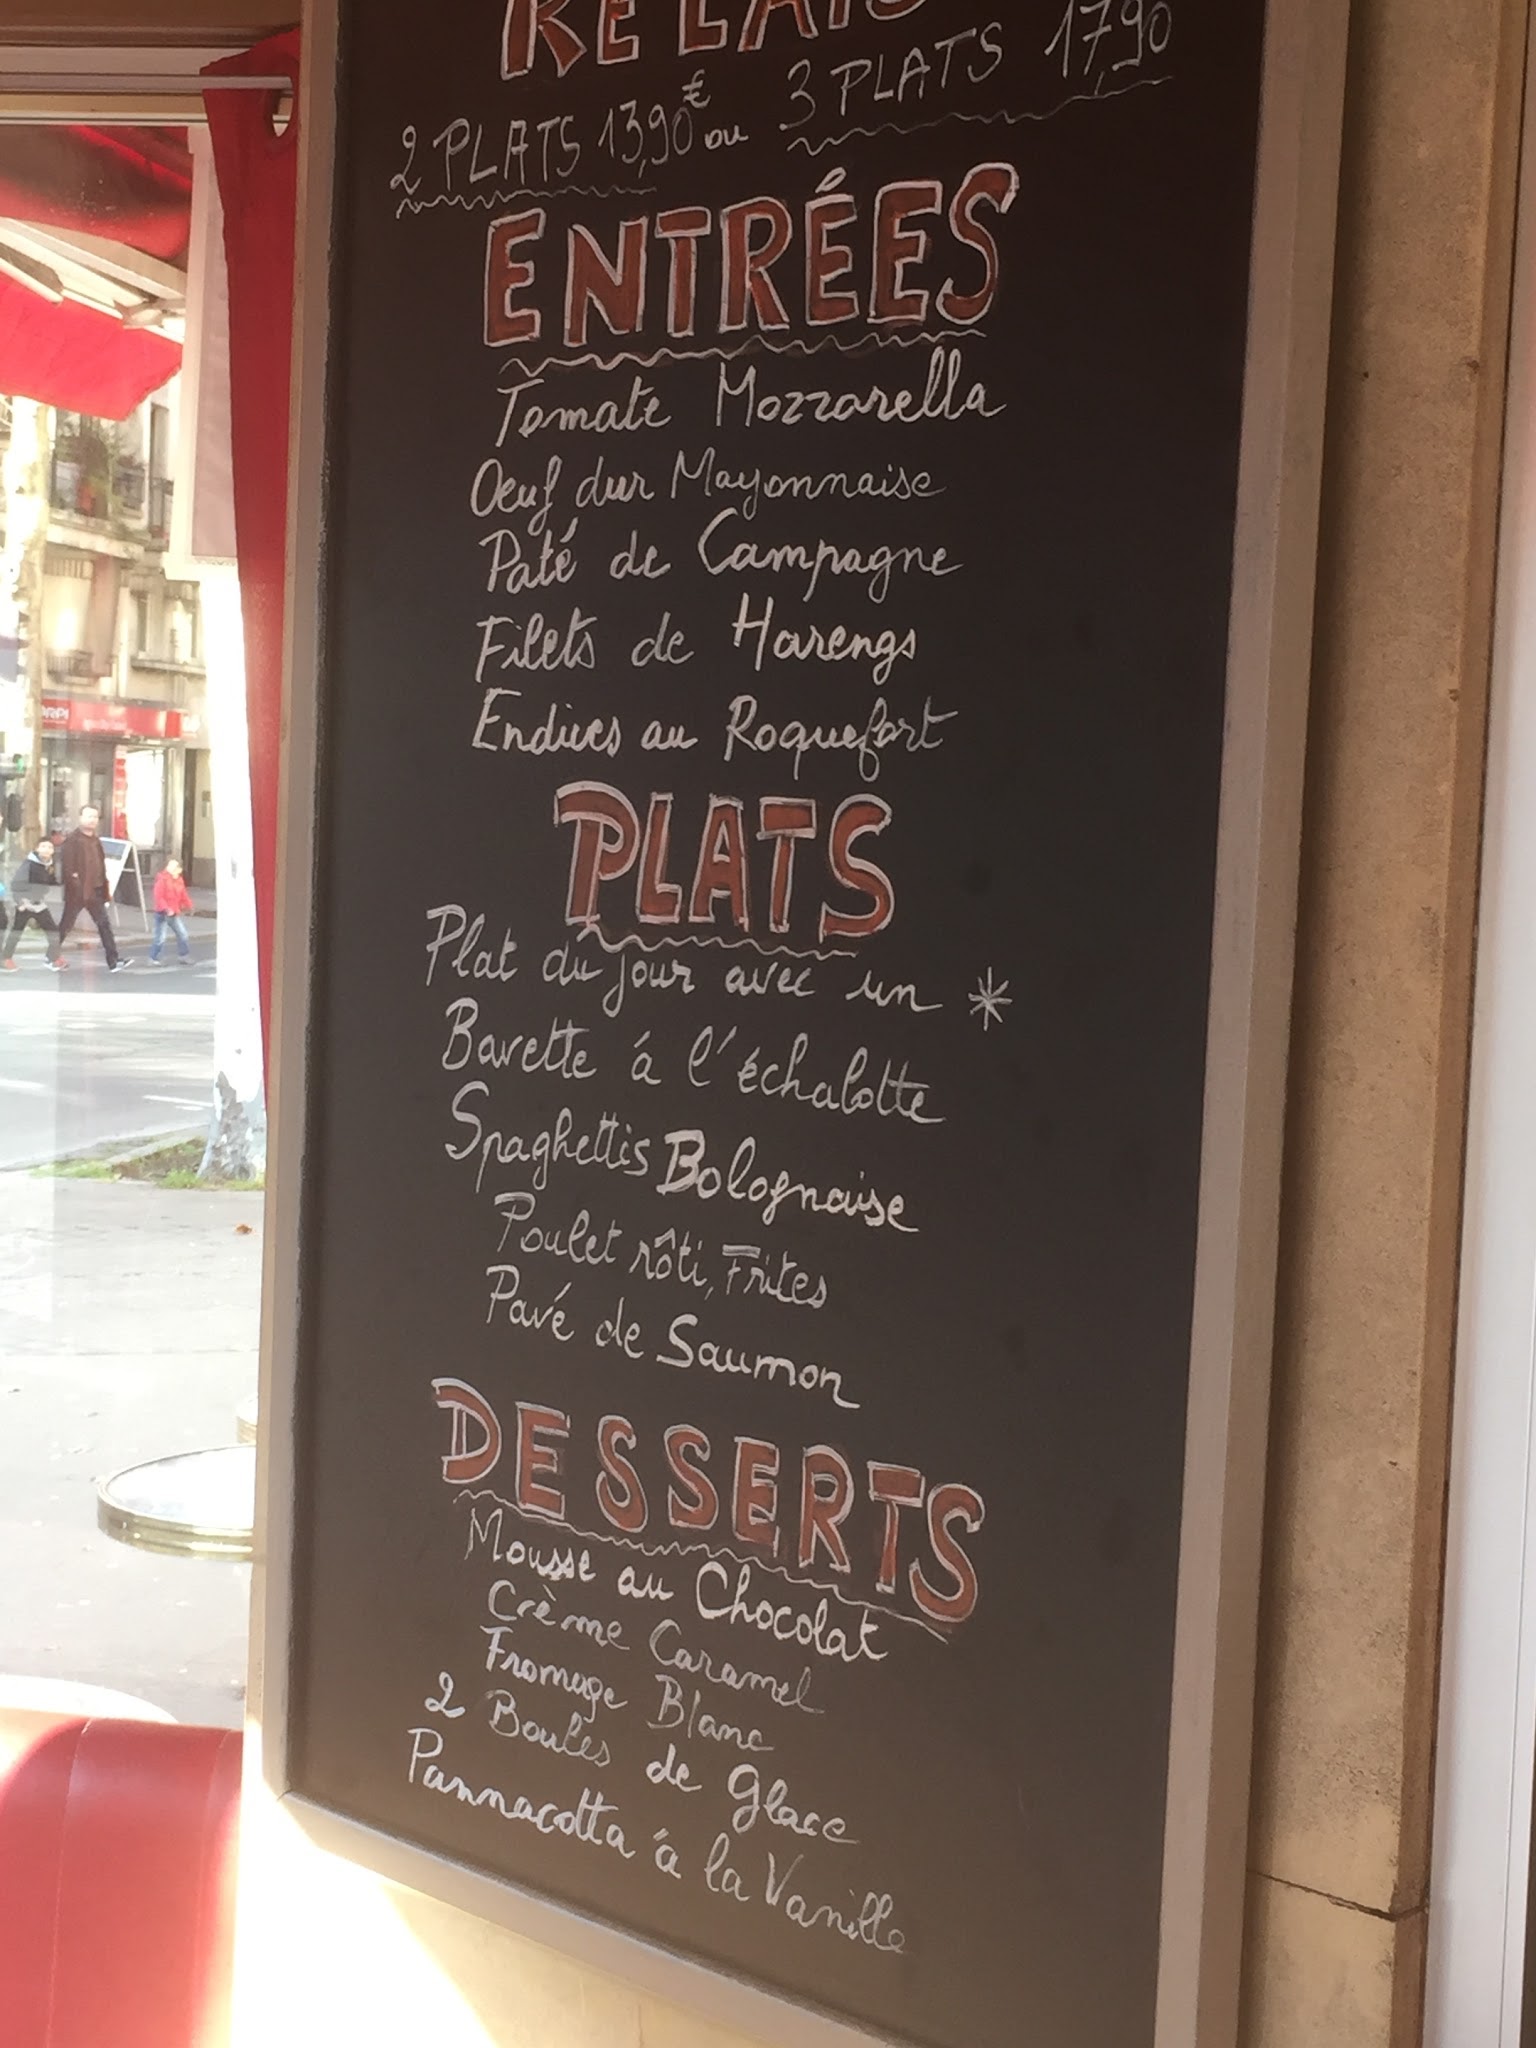 RELAIS
2 PLATS 13,90€ ou 3 PLATS 17,90
ENTRÉES
Tomate Mozzarella
Oeuf dur Mayonnaise
Paté de Campagne
Filets de Harengs
Endives au Roquefort
PLATS
Plat du jour avec un *
Bavette á l'échalotte
Spaghettis Bolognaise
Poulet rôti, Frites
Pavé de Saumon
DESSERTS
Mousse au Chocolat
Crème Caramel
Fromage Blanc
2 Boules de glace
Pannacotta á la Vanille